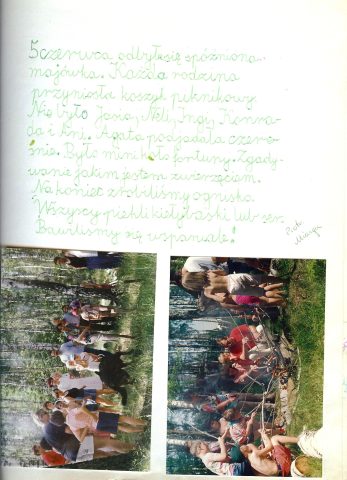 5 czerwca odbyła się spóźniona
majówka. Każda rodzina
przyniosła koszyk piknikowy.
Nie było Jasia, Neli, Ingi, Konra-
da i Ani. Agata podjadała czere-
śnie. Było mini koło fortuny. Zgady-
wanie jakim jestem zwierzęciem.
Na koniec zrobiliśmy ognisko.
Wszyscy piekli kiełbaski lub ser.
Bawiliśmy się wspaniale!